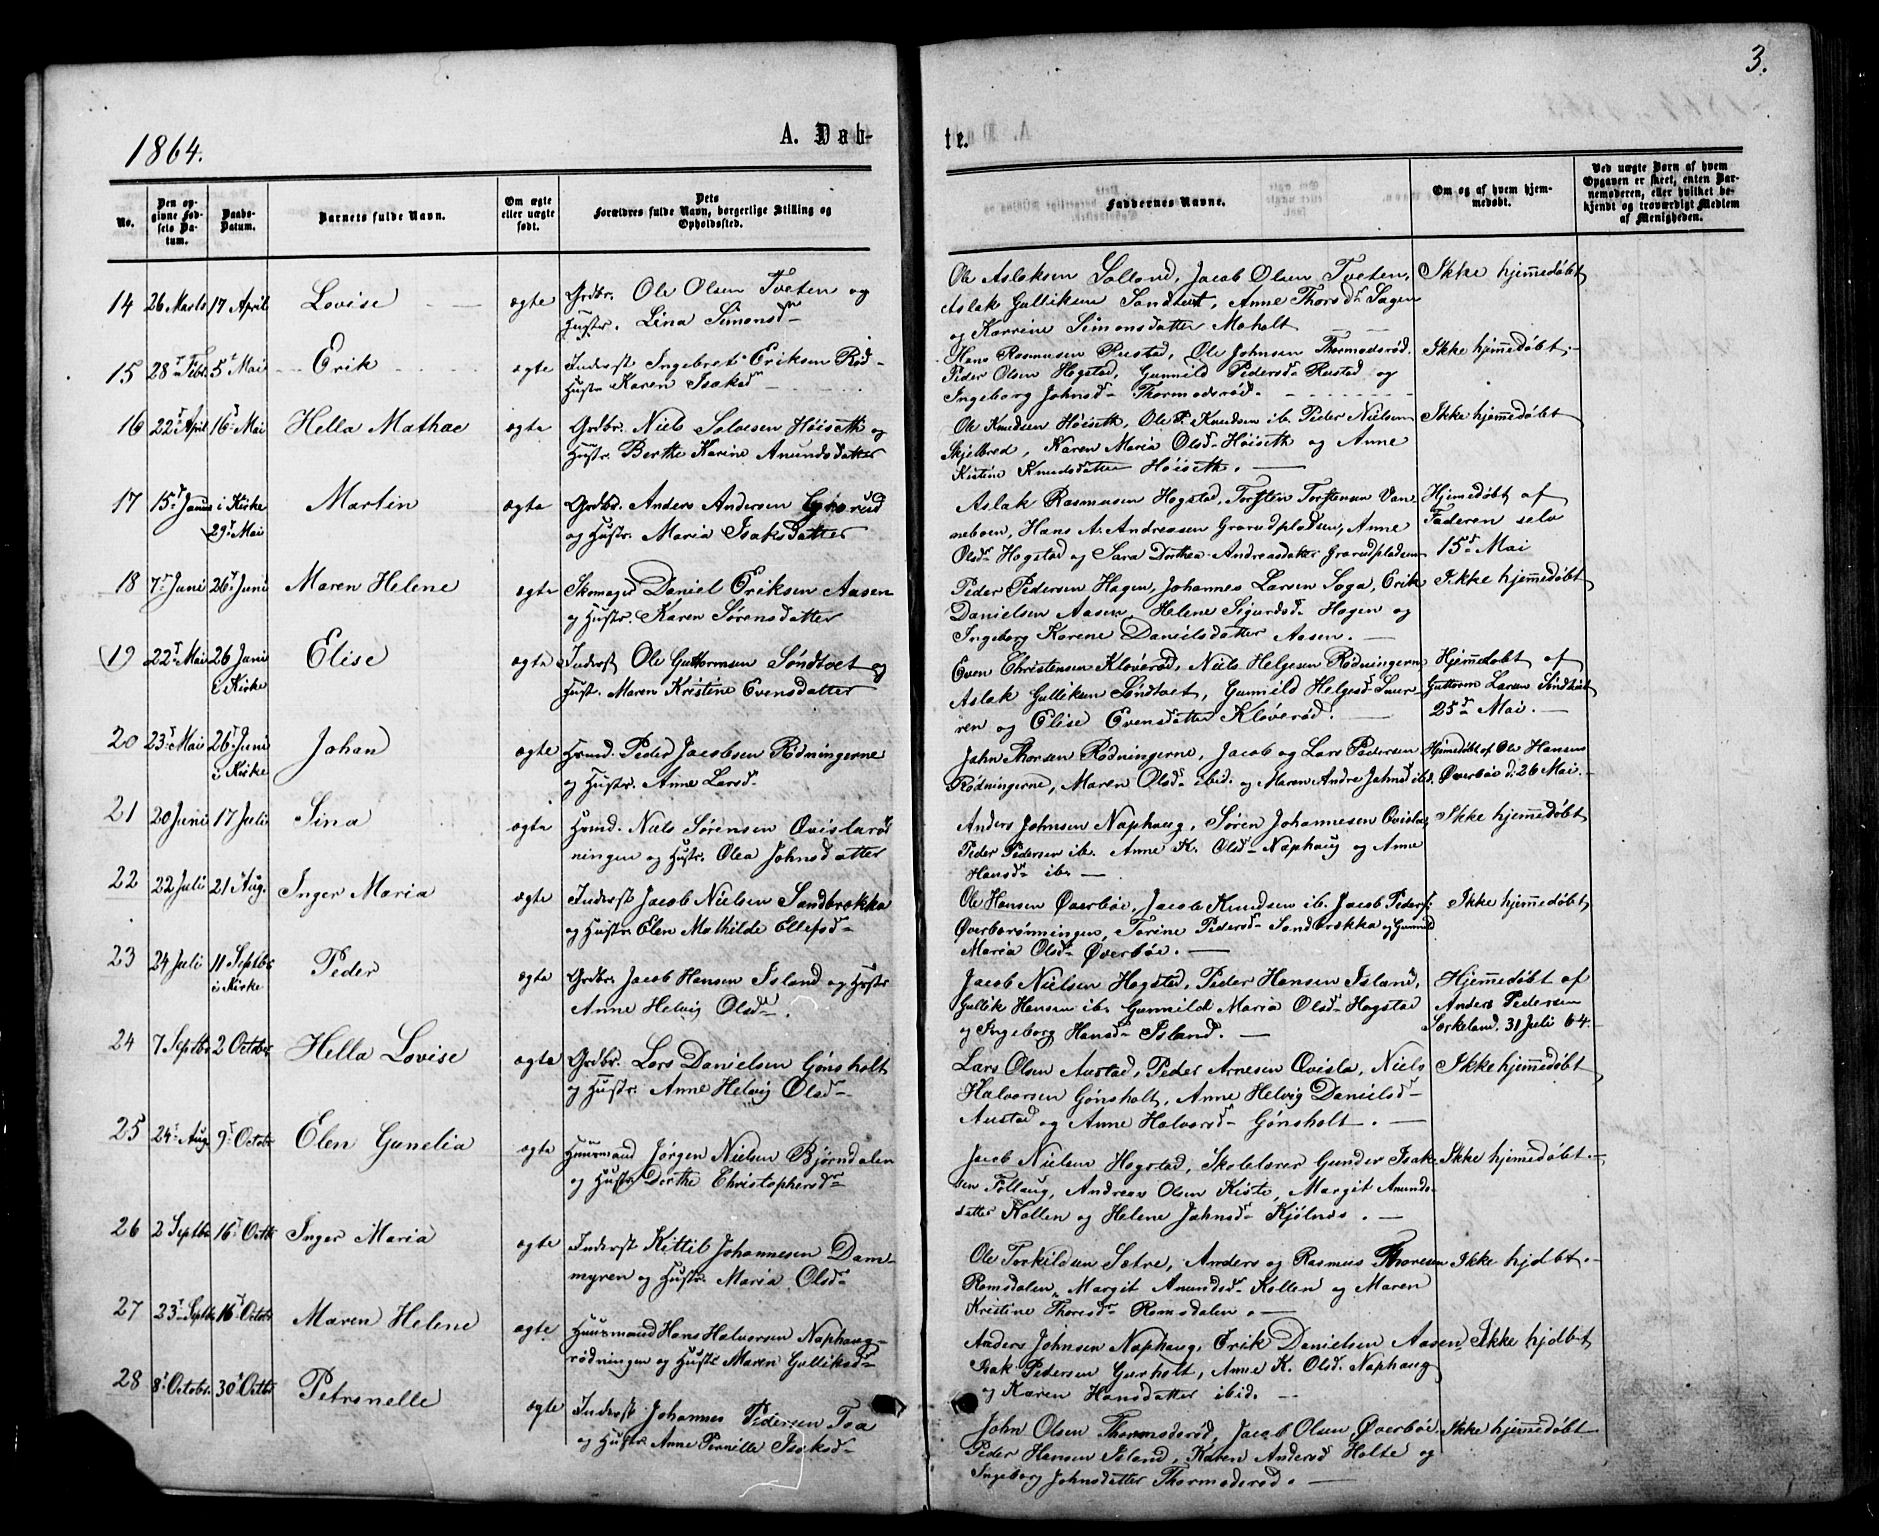 3.
1864.
A. Døb-
te.
No.
Den op-
givne Fød-
sels Da-
tum.
Daabs-
Datum.
Barnets fulde Navn.
Om ægte
eller uægte
født.
Dets
Forældres fulde Navn, borgerlige Stilling og
Opholdssted.
Faddernes Navne.
Om og af hvem hjem-
medøbt.
Ved uægte Børn af hvem
Opgaven er skeet, enten Bar-
nemoderen, eller hvilket be-
kjendt og troværdigt Medlem
af Menigheden.
14 26 Marts 17 April Lovise ægte Grdbr. Ole Olsen Tveten og
Hustr. Lina Simonsd
Ole Aslaksen Solland, Jacob Olsen Tveten,
Aslak Gulliksen Søndtvet, Anne Thorsd Sagen
og Karrine Simonsdatter Moholt
Ikke hjemedøbt
15 28 Febr. 5 Mai Erik ægte Inderst Ingebret Eriksen Rød
Hustr Karen Isaksd
Hans Rasmusen Rustad, Ole Johnsen Thormodsrød.
Peder Olsen Hogstad, Gunnild Pedersd Rustad og
Ingeborg Johnsd Thormodsrød.
Ikke hjemedøbt
16 22 April 16 Mai Hella Mathae ægte Grdbr. Niels Solvesen Høiseth og
Hustr. Berthe Karine Anundsdatter
Ole Knudsen Høiseth, Ole P. Knudsen ib. Peder Nielsen
Skjelbred, Karen Maria Olsd Høiseth og Anne
Kistine Knudsdatter Høiseth.
Ikke hjemedøbt
17 15 i Kirke
29 Mai Martin ægte Grdbr. Anders Andersen
og Hustr. Maria Isaksdatter
Aslak Rasmusen Hogstad, Torsten Torstensen Van-
neboen, Hans A. Andreasen Gravdpladsen, Anne
Olsd Hogstad og Sara Dorthea Andreasdatter Gravdpladsen
Hjemedøbt af
Faderen selv
15 Mai
18 7 Juni 26 Juni Maren Helene ægte Skomager Daniel Eriksen Aasen
og Hustr. Karen Sørensdatter
Peder Pedersen Hagen, Johannes Larsen Soga, Erik
Danielsen Aasen, Helene Sigurdsd Hagen og
Ingeborg Karene Danielsdatter Aasen.
Ikke hjemedøbt
19 22 Mai 26 Juni
i Kirke Elise ægte Inderst Ole Guttormsen Søndtvet og
Hust. Maren Kristine Evensdatter
Even Christensen Kløverød, Niels Helgesen Rødningerne
Aslak Gulliksen Søndtvet, Gunnild Helgesd
og Elise Evensdatter Kløverød.
Hjemedøbt af
Guttorm Larsen Søndtvet
25 Mai.
20 23 Mai 26 Juni
i Kirke Johan ægte Hsmd. Peder Jacobsen Rødningerne
og Hustr. Anne Larsd
John Thorsen Rødningerne, Jacob og Lars Pedersen
Rødningerne, Maren Olsd ibid. og Maren Andre Johnsd ibid.
Hjemedøbt af Ole Hansen
Øverbøe d. 26 Mai.
21 20 Juni 17 Juli Sina ægte Hsmd. Niels Sørensen Qvislarød
ningen og Hustr. Olea Johnsdatter
Anders Johnsen Naphaug, Søren Johannesen Qvisla,
Peder Pedersen ib. Anne K. Olsd Naphaug og Anne
Hansd ib.
Ikke hjemedøbt
22 22 Juli 21 Aug. Inger Maria ægte Inderst Jacob Nielsen Sandbrækka
og Hustr. Elen Mathilde Ellefsd
Ole Hansen Øverbøe, Jacob Knudsen ib. Jacob Peders.
Øverbørønningen, Torine Pedersd Sandbrækka og Gunnild
Maria Olsd Øverbøe.
Ikke hjemedøbt
23 24 Juli 11 Septbr
i Kirke Peder ægte Grdbr. Jacob Hansen Island og Hustr
Anne Helvig Olsd.
Jacob Nielsen Hogstad, Peder Hansen Island,
Gullik Hansen ib. Gunnild Maria Olsd Hogstad
og Ingeborg Hansd Island.
Hjemmedøbt af
Anders Pedersen
Sørkeland. 31 Juli 64.
24 7 Septbr 2 Octobr. Hella Lovise ægte Grdbr. Lars Danielsen Gønsholt
og Hustr. Anne Helvig Olsd
Lars Olsen Austad, Peder Arnesen Qvisla, Niels
Halvorsen Gønsholt, Anne Helvig Danielsd
Austad og Anne Halvorsd Gønsholt.
Ikke hjemedøbt
25 24 Aug 9 Octobr Elen Gunelia ægte Huusmand Jørgen Nielsen Bjørndalen
og Hustr Dorthe Christophersd
Jacob Nielsen Hogstad, Skolelærer Gunder Isak-
sen Follaug, Andreas Olsen Kiste, Margit Anunds-
datter Kollen og Helene Johnsd Kjølnæs.
Ikke hjemedøbt
26 2 Septbr 16 Octbr Inger Maria ægte Inderst Kittil Johannesen Dam-
myren og Hustr. Maria Olsd
Ole Torkildsen Sætre, Anders og Rasmus Thoresen
Romsdalen, Margit Anundsd Kollen og Maren
Kristine Thoresd Romsdalen.
Ikke hjdbt.
27 23 Septbr 16 Octobr Maren Helene ægte Huusmand Hans Halvorsen Naphaug-
rødningen og Hustr Maren Gulliksd
Anders Johnsen Naphaug, Erik Danielsen Aasen,
Isak Pedersen Gurholt, Anne K. Olsd. Naphaug
og Karen Hansdatter ibid.
Ikke hjdbt
28 8 Octobr. 30 Octbr Petronelle ægte Inderst Johannes Pedersen Toa
og Hustr Anne Pernille Isaksd
John Olsen Thormodsrød, Jacob Olsen Øverbøe
Peder Hansen Island, Karen Andersd Holte og
Ingeborg Johnsdatter Thormodsrød.
Ikke hjemedøbt